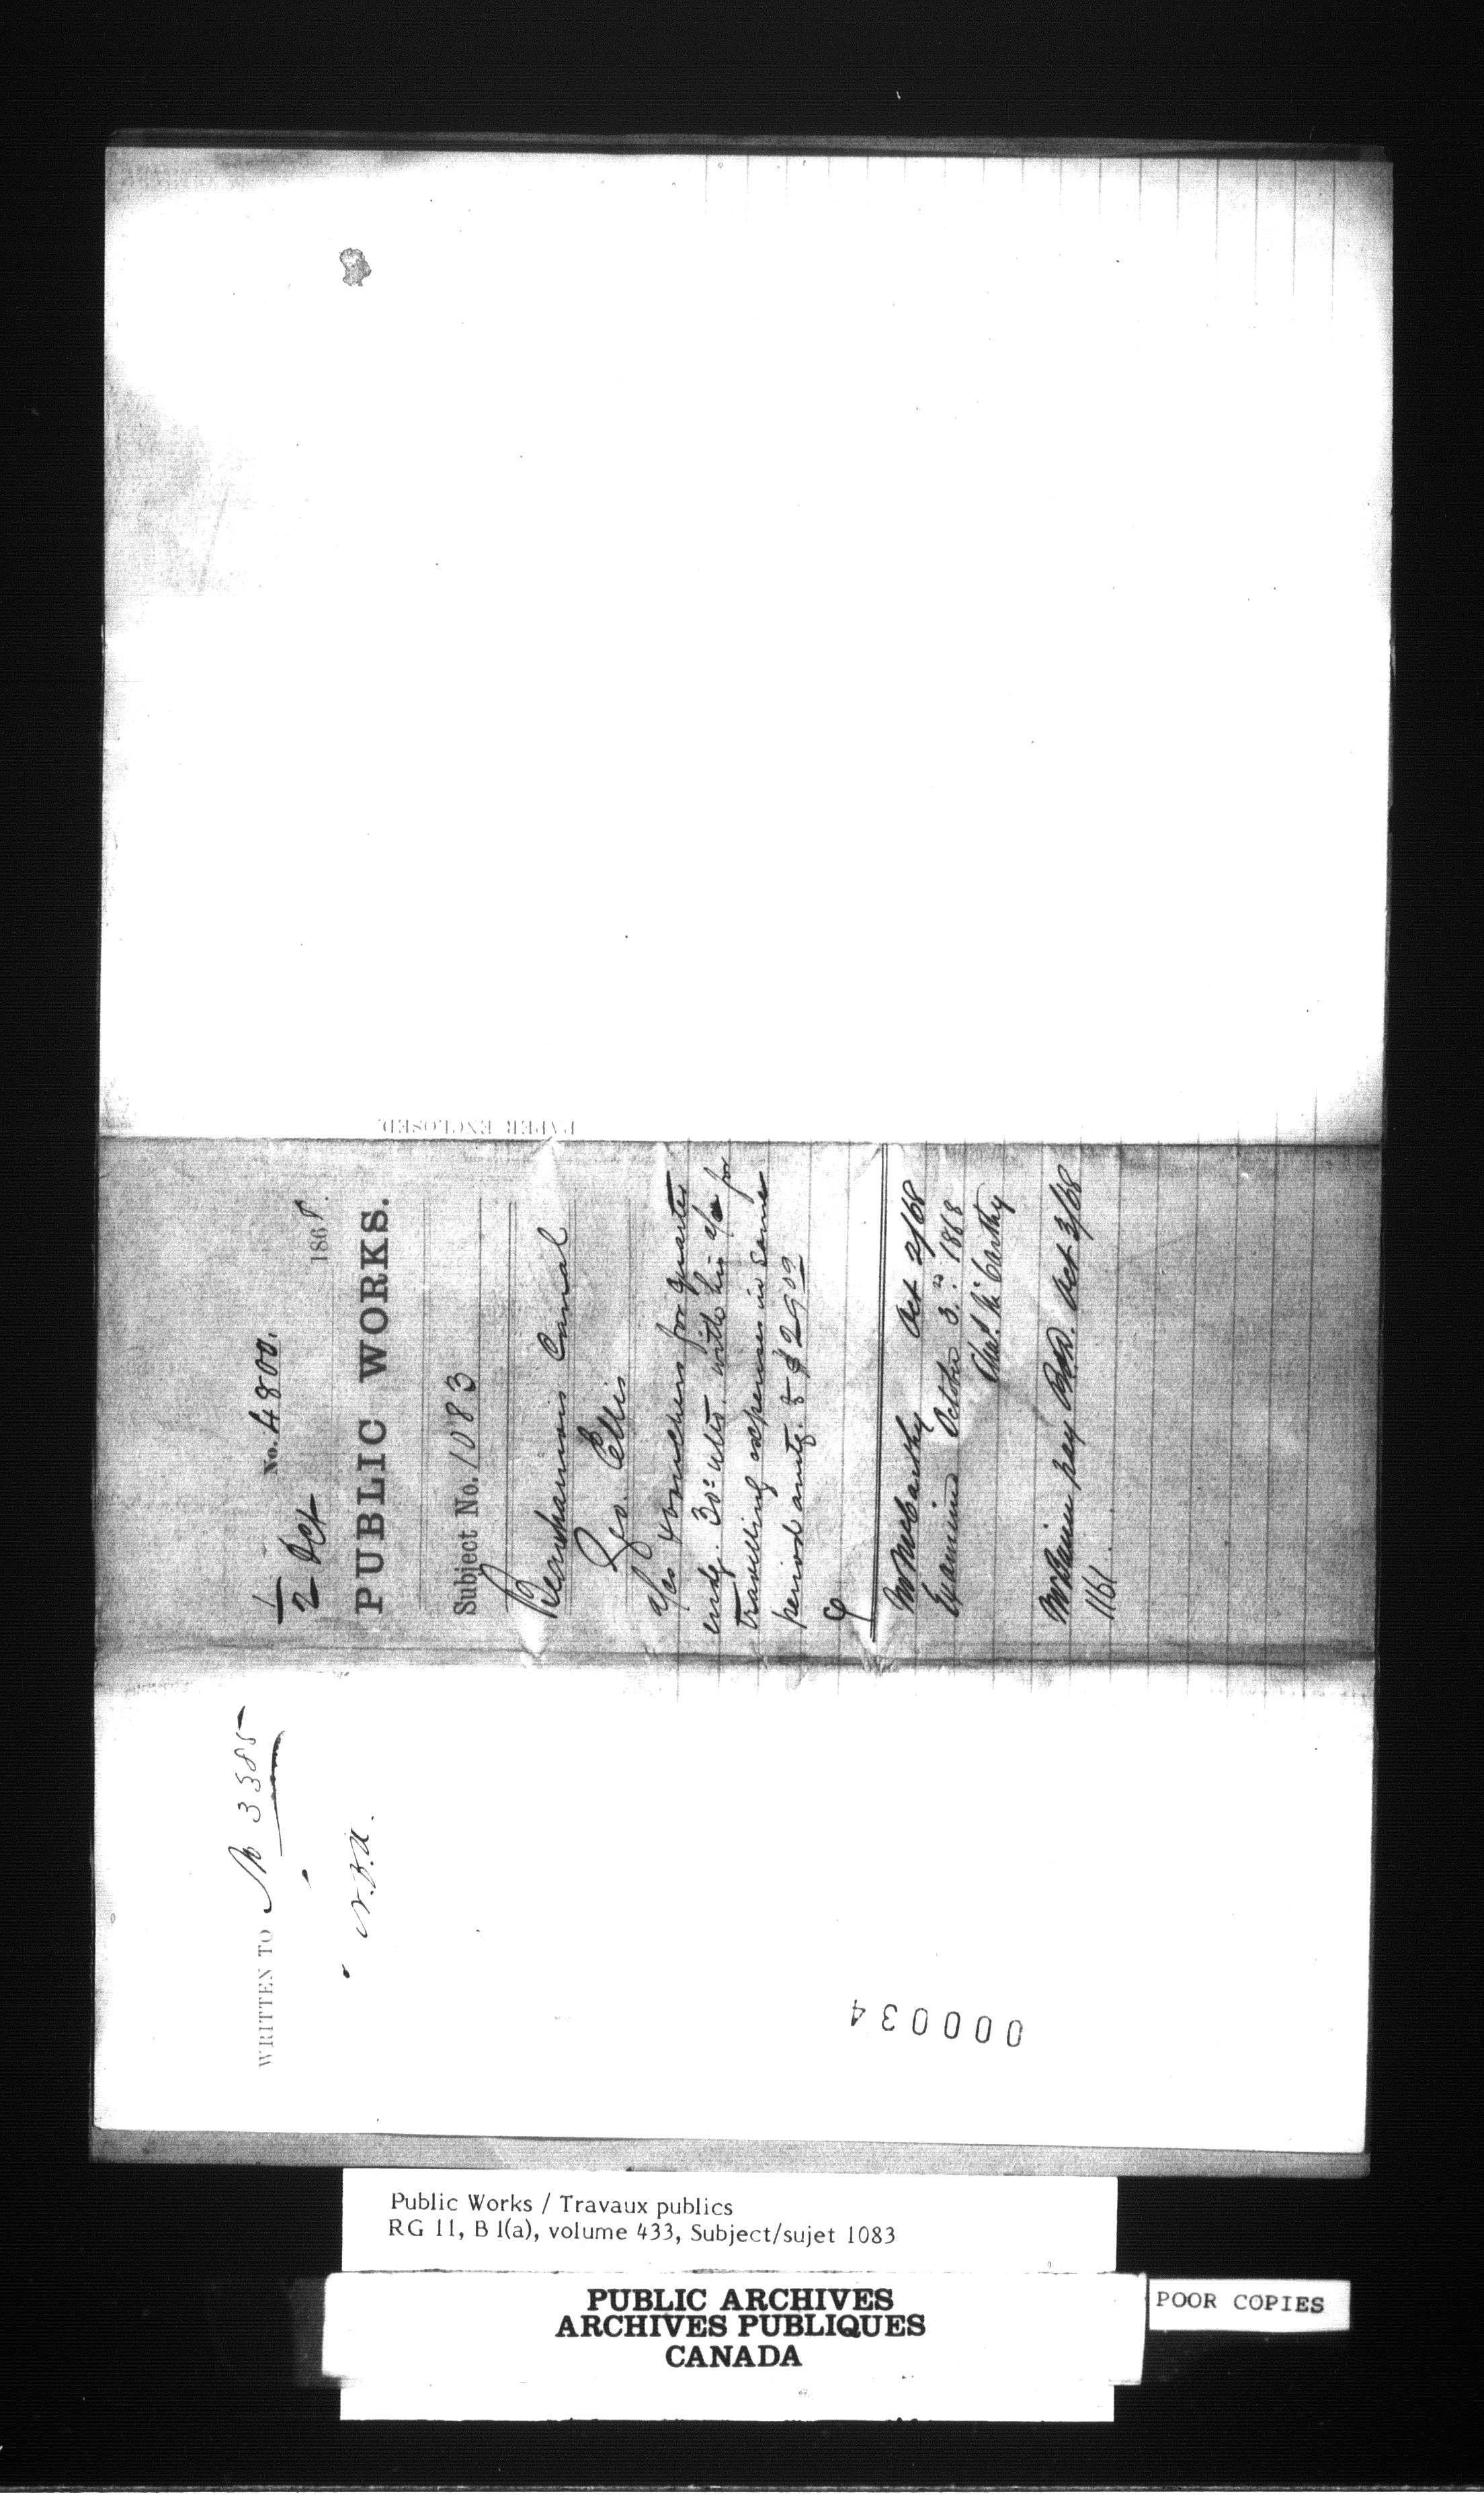 No. 4800.
1
2 Oct 1868.
PUBLIC WORKS.
Subject No. 1083
Beauharnois Canal
Geo. Ellis
a/cs vouchers for quarter
endg. 30th ulto. with his a/c for
travelling expenses in same
period amtg. to $29.00
Mr McCarthy Oct 2/68
Examined October 3rd 1868
Chas. McCarthy
pay Oct 3/68
1161
PAPER ENCLOSED.
WRITTEN TO No 3385
000034
Public Works / Travaux publics
RG 11, B 1(a), volume 433, Subject/sujet 1083
PUBLIC ARCHIVES
ARCHIVES PUBLIQUES
CANADA
POOR COPIES